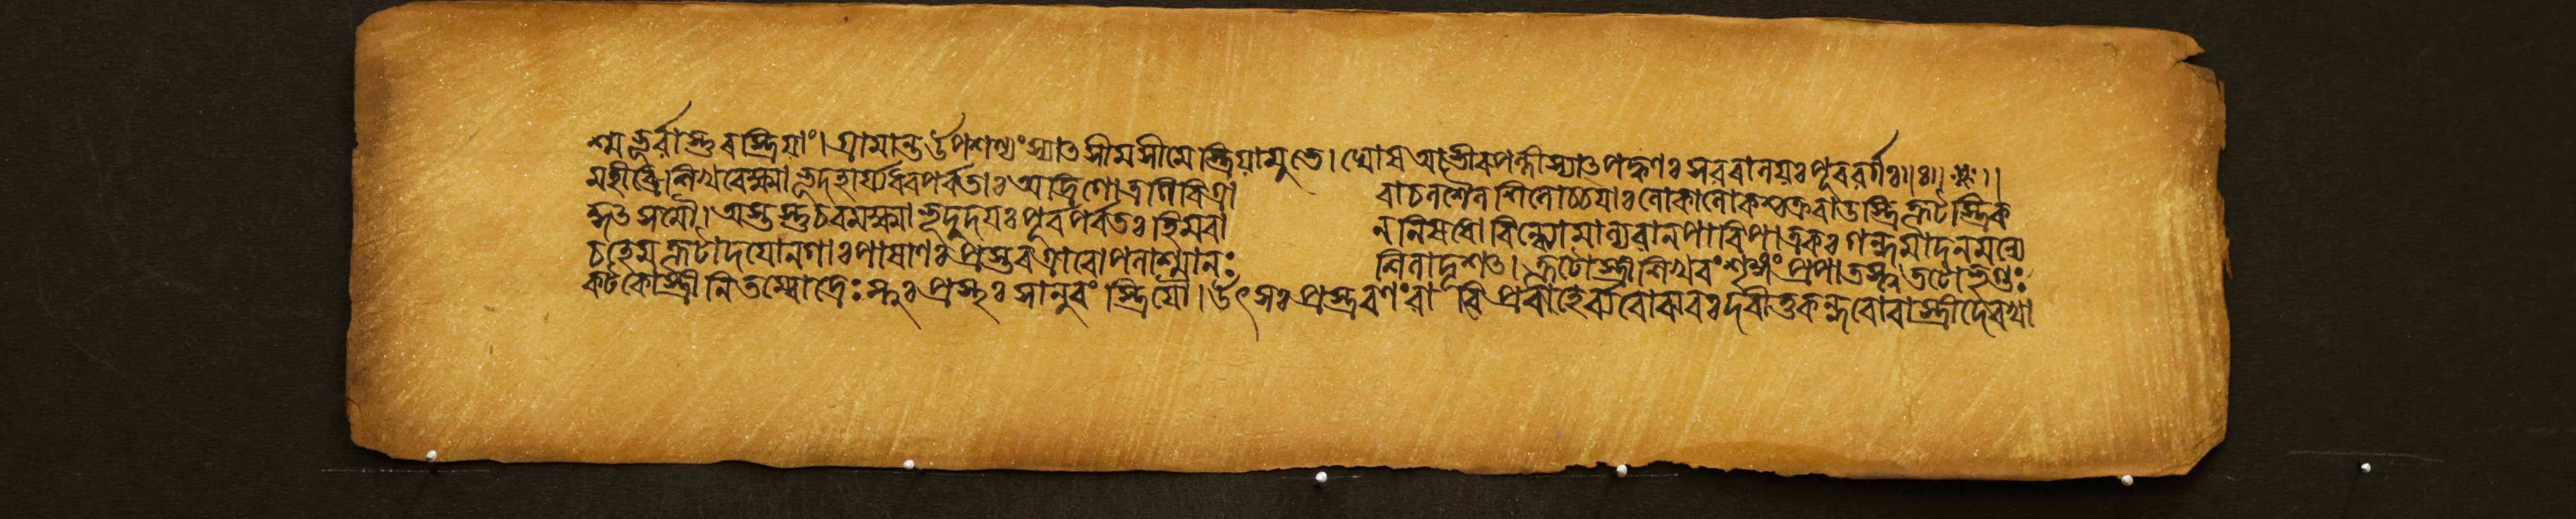 শ্মভূর্বাস্তুরস্ত্রিয়াং। গ্রামান্ত উপশল্যংস্যাৎ সীমসীমে স্ত্রিয়ামুভে। ঘোষ আভীরপল্লীস্যাৎ পক্কণঃ সবরালয়ঃ পূরবর্গঃ॥ঃ॥
মহীধ্রে শিখরিক্ষ্মাভৃদহার্য্যধরপর্বতাঃ অদ্রিগোত্রগিরিগ্রা বাচলশৈলশিলোচ্চয়াঃ লোকালোকশ্চক্রবাডস্ত্রিকূটস্ত্রিক
কুৎ সমৌ। অস্তস্তু চরমক্ষ্মাভৃদুদয়ঃ পূর্বপর্বতঃ হিমবা ন্নিষধো বিন্ধ্যোমাল্যবানপারিপাত্রকঃ গন্ধমাদনমন্যে
চ হেমকূটাদয়োনগাঃ পাষাণঃ প্রস্তরগ্রাবোপলাশ্মানঃ শিলাদৃশৎ। কূটোস্ত্রী শিখরং শৃঙ্গং প্রপাতস্ত্বতটোভৃগুঃ
কটকোস্ত্রী নিতম্বোদ্রেঃ স্নুঃ প্রস্থঃ সানুরস্ত্রিয়ৌ। উৎসঃ প্রস্রবণং বারি প্রবাহোনির্ঝরোঝরঃ দরীতুকন্দরোবাস্ত্রীদেবখা